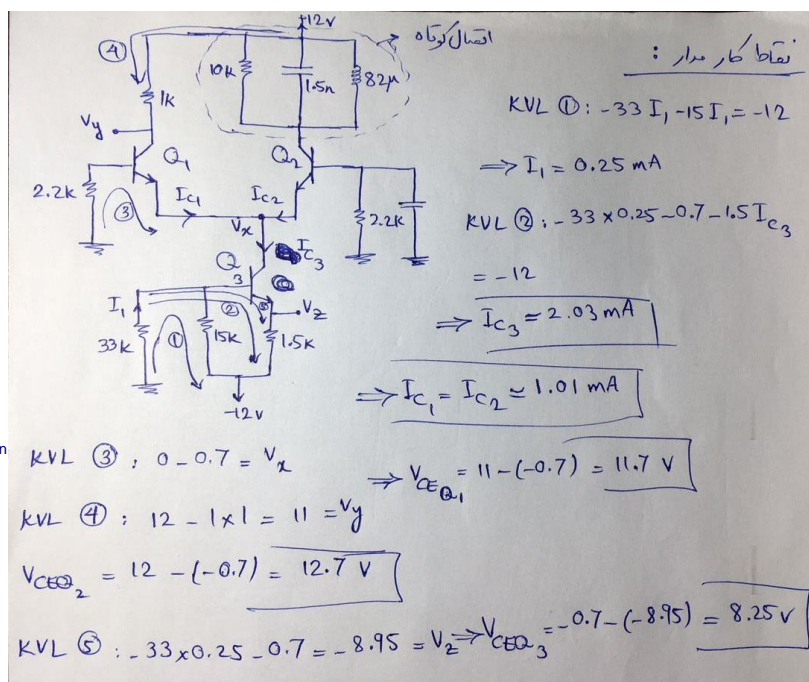 +12v
اتصال کوتاه
نقاط کار مدار :
④
10k
1.5n
82μ
1k
Vy
Q1
Q2
2.2k
③
Ic1
Ic2
Vx
2.2k
Ic3
Q3
I1
②
⑤
Vz
33k
①
15k
1.5k
-12v
KVL ①: -33 I1 -15 I1 = -12
⇒ I1 = 0.25 mA
KVL ②: -33×0.25-0.7-1.5 Ic3
= -12
⇒ Ic3 = 2.03 mA
⇒ Ic1 = Ic2 ≃ 1.01 mA
n
KVL ③ : 0 - 0.7 = Vx
⇒ VCEQ1 = 11-(-0.7) = 11.7 V
KVL ④ : 12 - 1×1 = 11 = Vy
VCEQ2 = 12 -(-0.7) = 12.7 V
KVL ⑤ : -33×0.25-0.7 = -8.95 = Vz ⇒ VCEQ3 = -0.7-(-8.95) = 8.25 v